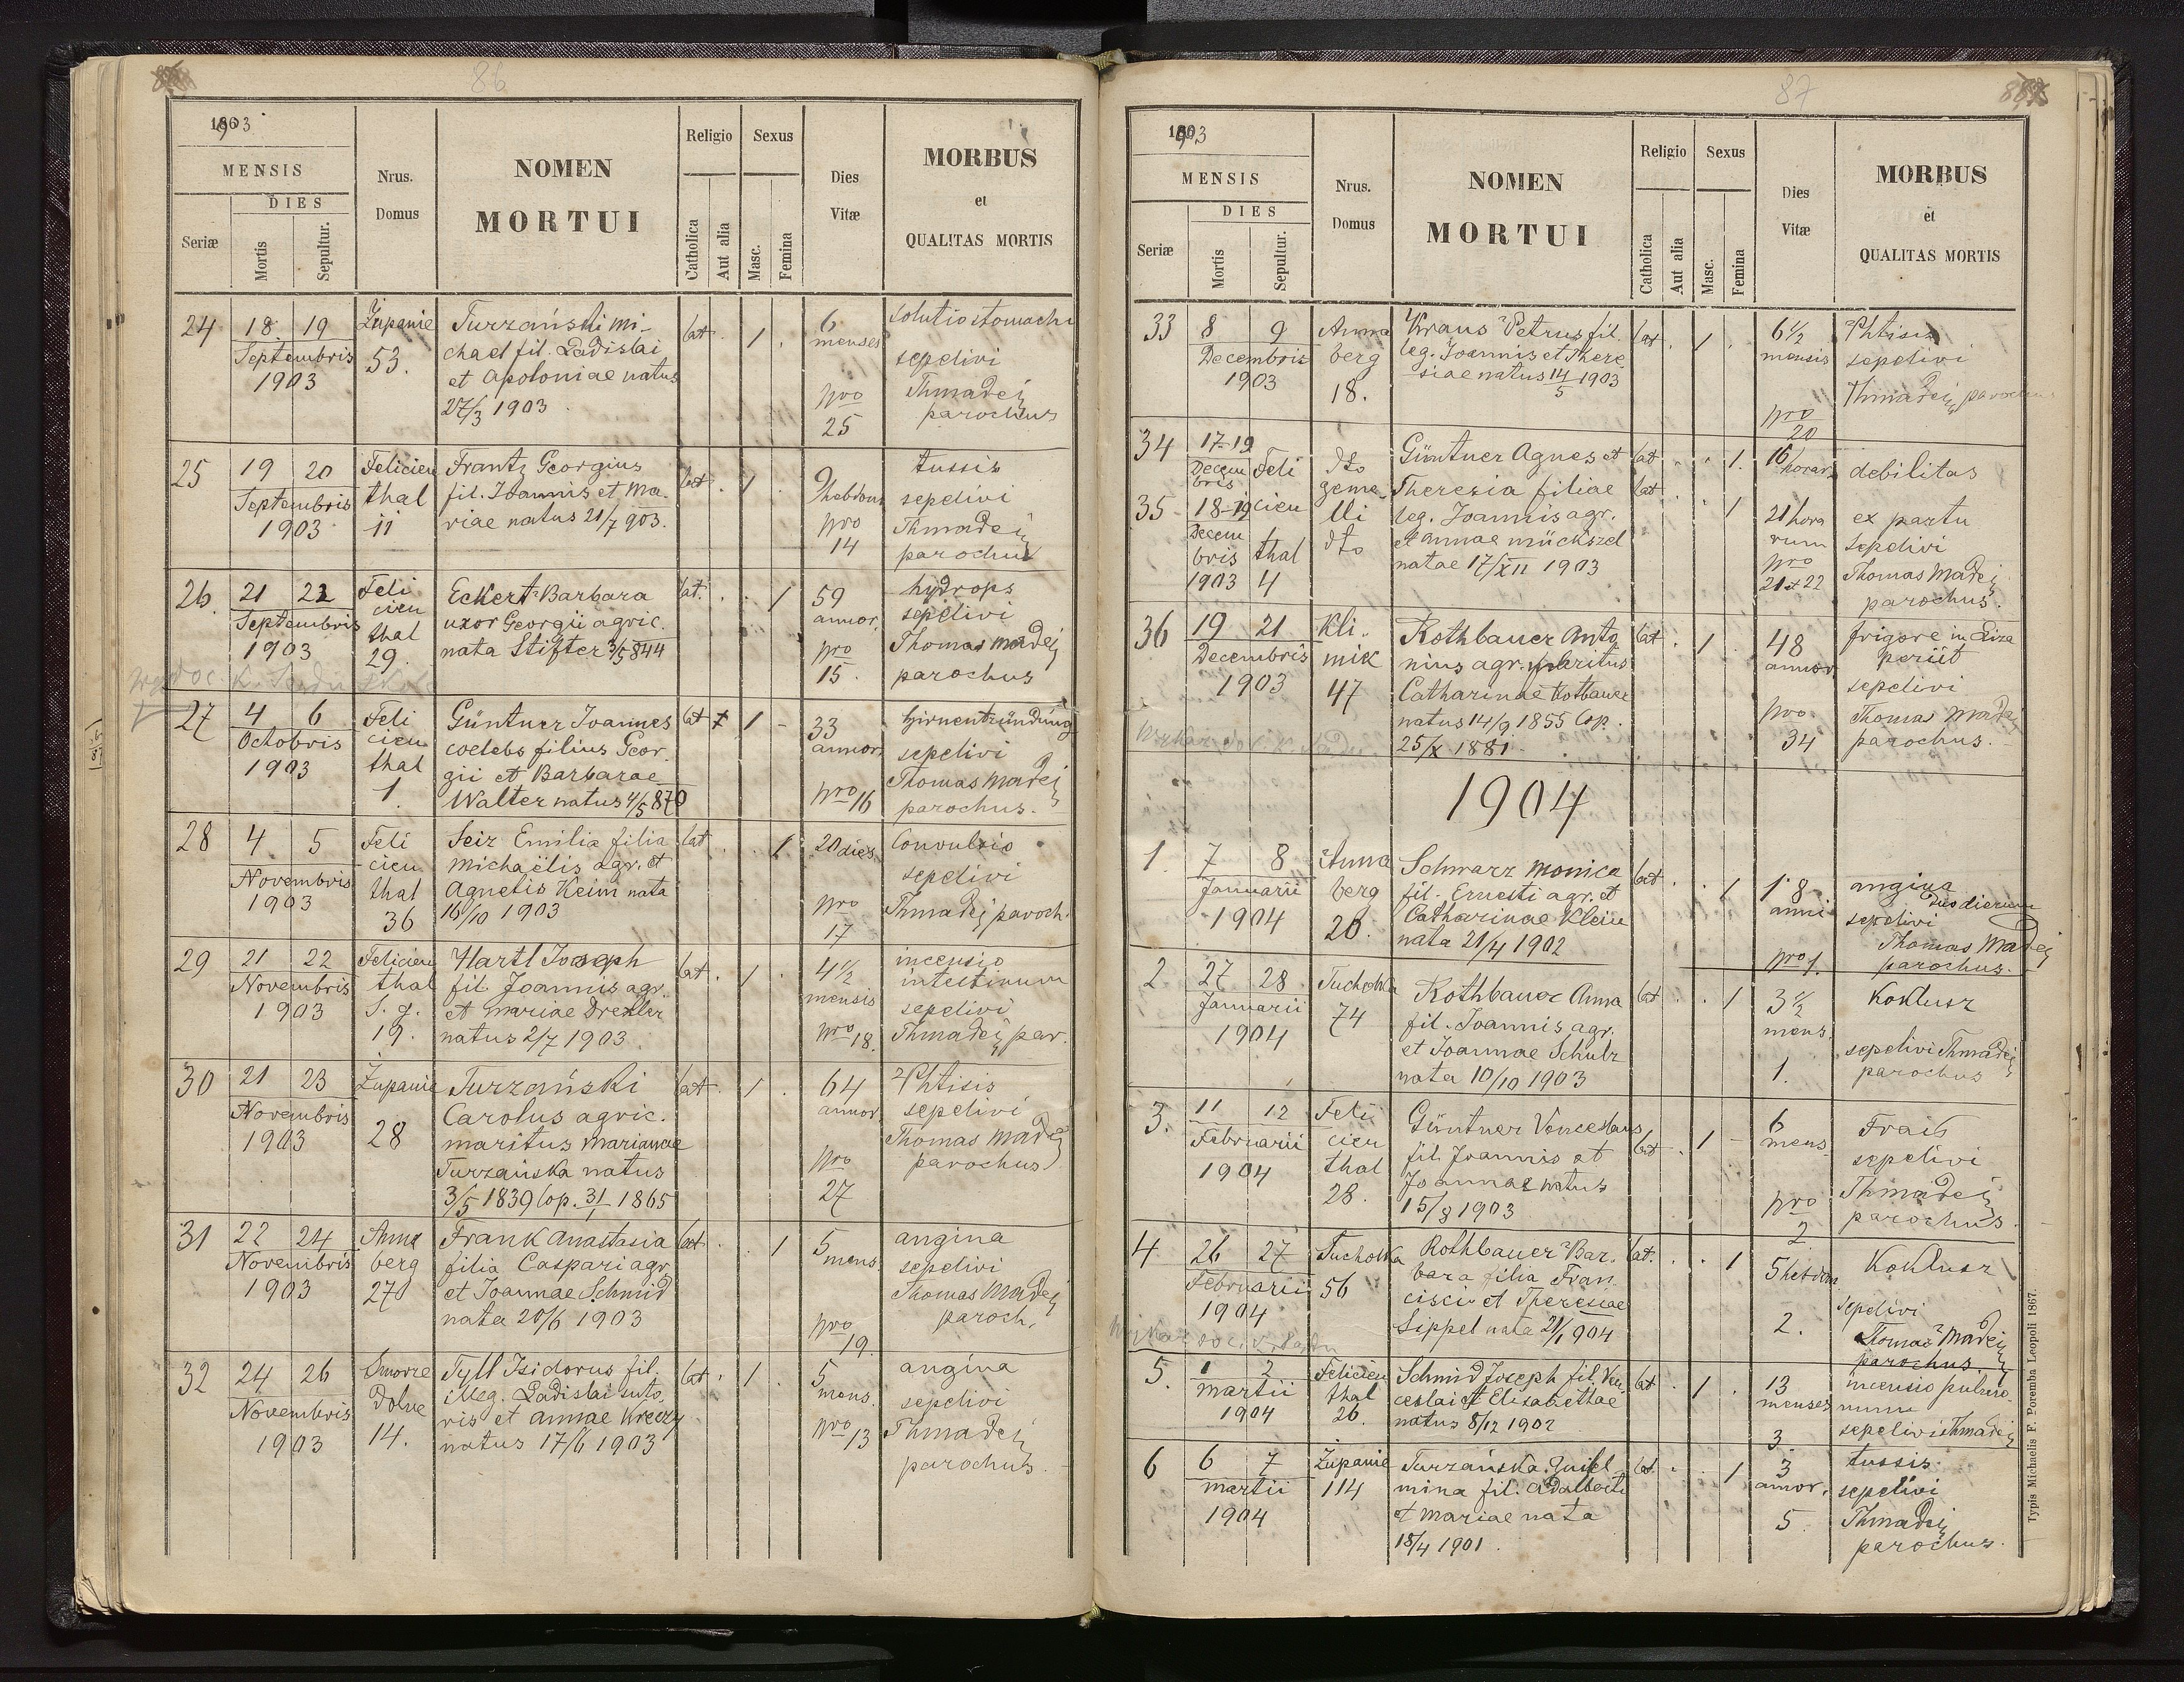 86
1903
MENSIS
DIES
Seriæ
Mortis
Sepultur.
Nrus.
Domus
NOMEN
MORTUI
Religio
Catholica
Aut alia
Sexus
Masc.
Femina
Dies
Vitæ
MORBUS
et
QUALITAS MORTIS
24 18. 19 Septembris 1903
Żupanie 53.
Turzański Mi-
chael fil. Ladislai
et Apoloniae natus
27/3 1903
lat. 1
6 menses
pro 25
solutio stomachi
sepelivi
Thmadej
parochus
25 19 20 Septembris 1903
Felicien
thal
11
Frantz Georgius
fil. Joannis et Ma-
riae natus 21/7 903.
lat. 1
9 hebdom
pro 14
tussis
sepelivi
Thmadej
parochus
26. 21 22 Septembris 1903
Feli
cien
thal
29.
Eckert Barbara
uxor Georgii agric.
nata Stifter 3/5 844
lat. 1
59 annor.
pro 15.
hydrops
sepelivi
Thomas Madej
parochus
27 4 6 Octobris 1903
Feli
cien
thal
1.
Güntner Joannes
coelebs filius Geor-
gii et Barbarae
Walter natus 4/5 870
lat 1 -
33 annor.
pro 16
Hirnentzündung
sepelivi
Thomas Madej
parochus.
28 4. 5 Novembris 1903
Feli
cien
thal
36
Seir Emilia filia
Michaëlis agr. et
Agnetis Keim nata
16/10 1903
lat. 1
20 dies
pro 17
Convulsio
sepelivi
Thmadej paroch.
29 21 22 Novembris 1903
Felicien
thal
S. g.
19.
Hartl Joseph
fil. Joannis agr.
et Mariae Drexler
natus 2/7 1903
lat. 1
4 1/2 mensis
pro 18.
incensio
intestinum
sepelivi
Thmadej par.
30 21 23 Novembris 1903
Żupanie
28
Turzański
Carolus agric.
maritus Mariannae
Turzańska natus
3/5 1839 Cop. 31/1 1865
lat. 1
64 annor
pro 27
Phtisis
sepelivi
Thomas Madej
parochus
31 22 24 Novembris 1903
Anna
berg
27
Frank Anastasia
filia Caspari agr.
et Joannae Schmid
nata 20/6 1903
lat. 1
5 mens.
pro 19.
angina
sepelivi
Thomas Madej
paroch.
32 24 26 Novembris 1903
Smorze
Dolne
14.
Tyll Isidorus fil.
illeg. Ladislai suto-
ris et Annae Kreczy
natus 17/6 1903
lat. 1
5 mens.
pro 13
angina
sepelivi
Thmadej
parochus.
87
1903
MENSIS
DIES
Seriæ
Mortis
Sepultur.
Nrus.
Domus
NOMEN
MORTUI
Religio
Catholica
Aut alia
Sexus
Masc.
Femina
Dies
Vitæ
MORBUS
et
QUALITAS MORTIS
33 8 9 Decembris 1903
Anna
berg
18.
Kraus Petrus fil.
leg. Joannis et There
siae natus 14/5 1903
lat. 1
6 1/2 mensis
pro 20
Phtisis
sepelivi
Thmadej parochus
34 17-19 Decem
bris
35 18-19 Decem
bris
1903
Feli
cien
thal
4
dto
geme-
lli
dto
Güntner Agnes et
Theresia filiae
leg. Joannis agr.
et Annae Mückszel
natae 17/XII 1903
lat 1.
lat 1
16 horar.
21 hora
rum
pro
21 et 22
debilitas
ex partu
sepelivi
Thomas Madej
parochus.
36 19 21 Decembris 1903
Kli-
mik
47
Rothbauer Anto
nius agr. maritus
Catharinae Rotbauer
natus 14/9 1855 Cop.
25/X 1881.
lat. 1
48 annor
pro. 34
frigore in
periit
sepelivi
Thomas Madej
parochus.
1904
1. 7 8 Januarii 1904
Anna
berg
26.
Schwarz Monica
fil. Ernesti agr. et
Catharinae Klein
nata 21/4 1902
lat. 1
1 8 anni
pro 1.
angina
duo dierum
sepelivi
Thomas Madej
parochus.
2 27 28 Januarii 1904
Tucholka
74
Rothbauer Anna
fil. Joannis agr.
et Joannae Schulz
nata 10/10 1903
lat. 1
3 1/2 mens.
1.
Koklusz
sepelivi Thmadej
parochus
3. 11 12 Februarii 1904
Feli
cien
thal
28.
Güntner Venceslaus
fil. Joannis et
Joannae natus
15/8 1903
lat. 1 -
6 mens.
pro 2.
Frais
sepelivi
Thmadej
parochus.
4 26 27 Februarii 1904
Tucholka
56
Rothbauer Bar-
bara filia Fran
cisci et Theresiae
Sippel nata 21/1 904
lat. 1
5 hebdom.
2.
Koklusz
sepelivi
Thomas Madej
parochus.
5. 1 2 Martii 1904
Felicien
thal
26.
Schmid Joseph fil. Ven-
ceslai et Elisabethae
natus 8/12 1902
lat. 1
13 menses
3.
incensio pulmo
num
sepelivi Thmadej
6 6 7 Martii 1904
Żupanie
114
Turzańska Guiel
mina fil. Adalberti
et Mariae nata
18/4 1901.
lat. 1
3 annor.
5.
tussis.
sepelivi
Thmadej
parochus.
Typis Michaelis F. Poremba Leopoli 1867.